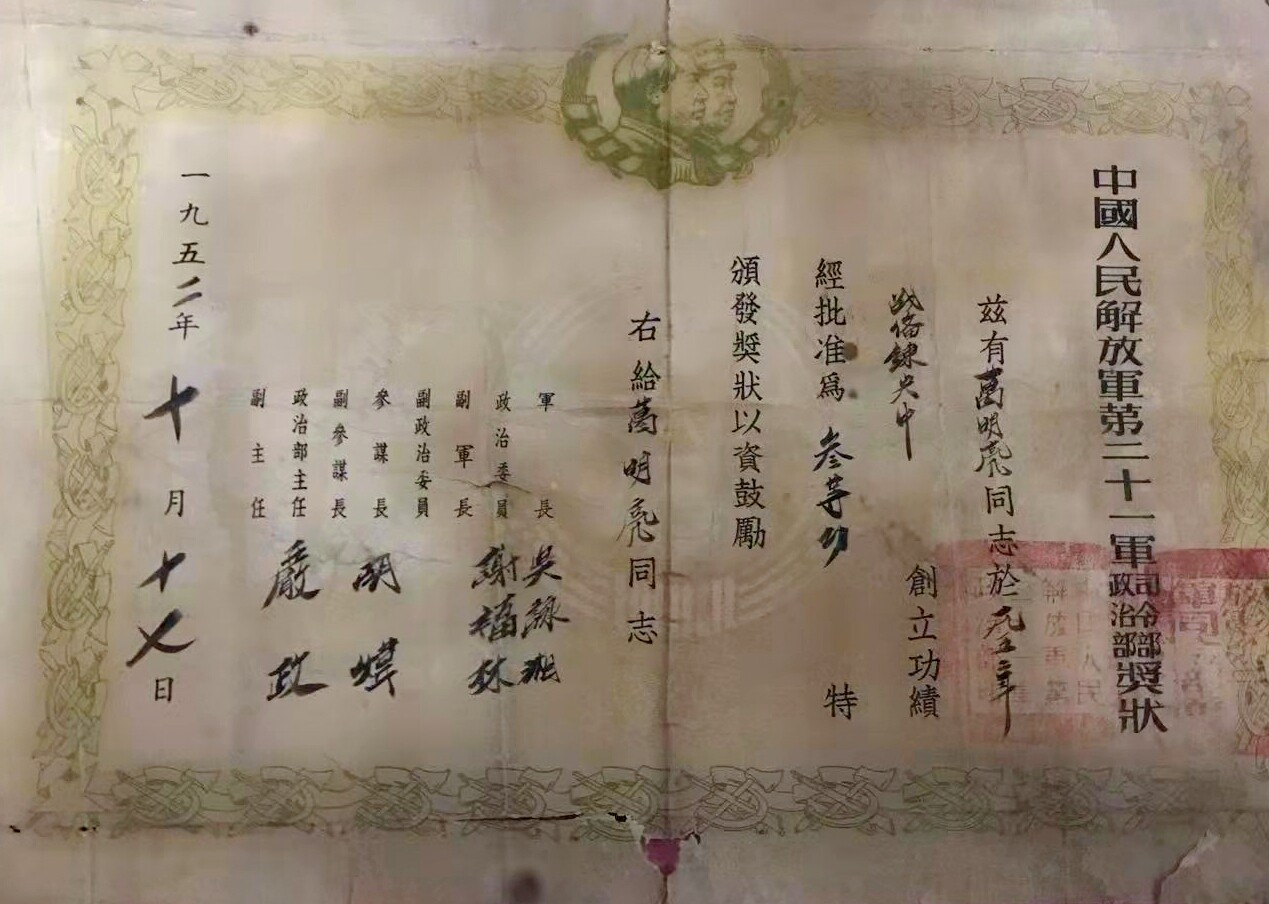 中國人民解放軍第二十一軍司令部政治部獎狀
茲有萬明亮同志於一九五二年
戰備鍊兵中 創立功績
特
經批准爲叁等功
頒發獎狀以資鼓勵
右給萬明亮同志
軍長 吳詠湘
政治委員 謝福林
副軍長
副政治委員
參謀長 胡煒
副參謀長
政治部主任 嚴政
副主任
一九五二年十月十七日